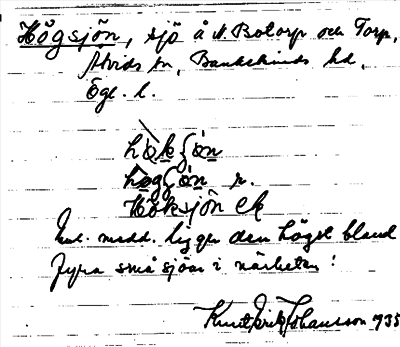 Högsjön, sjö å N Botorp och Torp,
Åtvids sn, Bankekinds hd,
Ögl. l.
hòkʃòn
hògʃòn r.
Höksjön ek
Enl. medd. ligger den högst bland
fyra små sjöar i närheten!
Knut Erik Johansson 1935